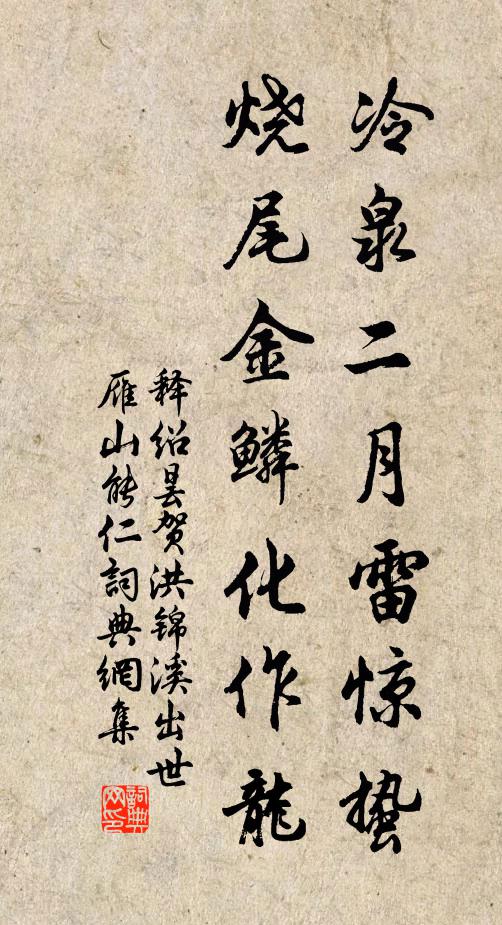 冷泉二月雷惊蛰
烧尾金鳞化作龍
释绍昙贺洪锦溪出世
雁山能仁詞典網集
詞典网印